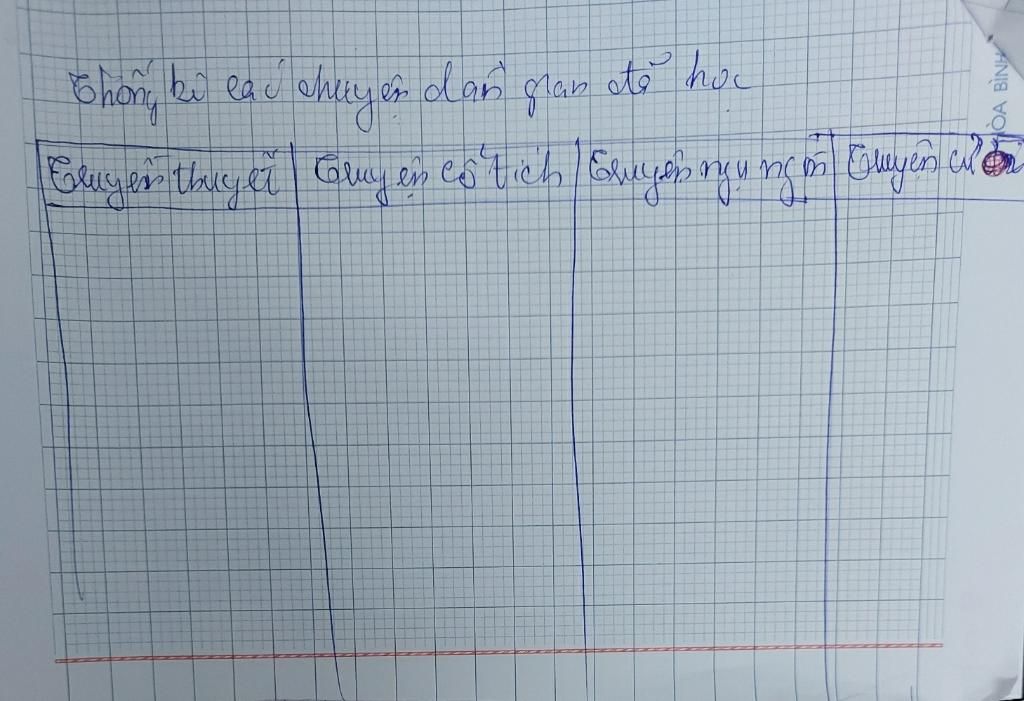 Thống kê các chuyện dân gian đã học
Truyền thuyết Truyện cổ tích Truyện ngụ ngôn Truyện cười
HÒA BÌNH